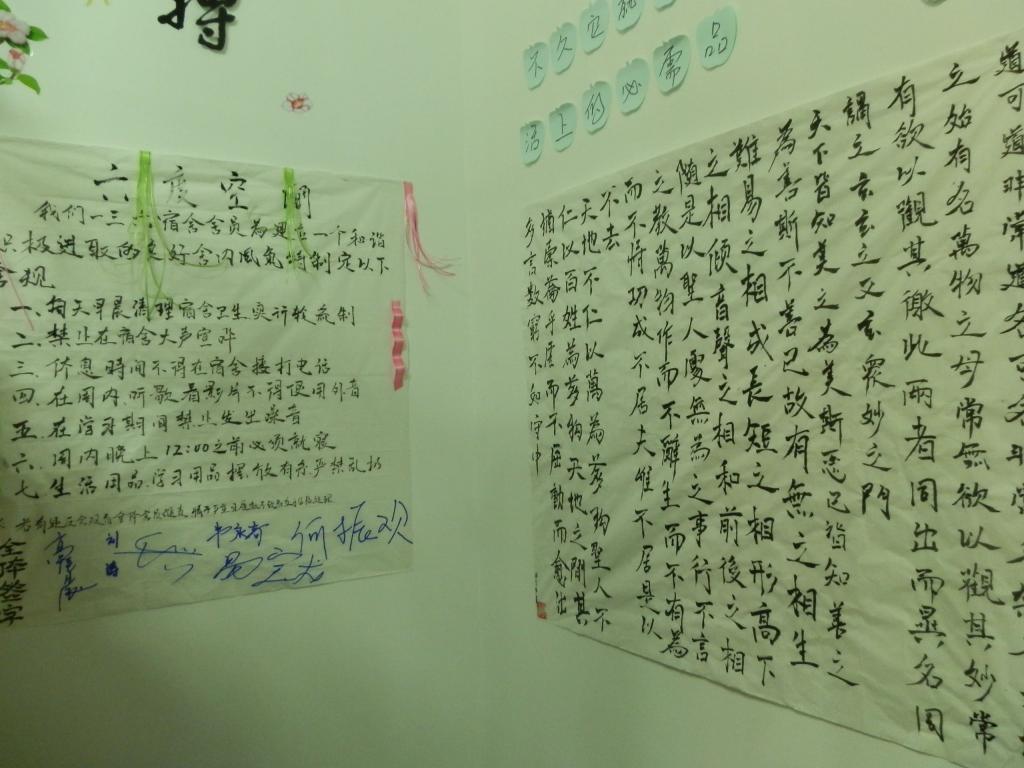 搏
不久定能
活上的必需品
六度空间
我们一三六宿舍舍员为建立一个和谐
积极进取的美好舍内风气特制定以下
舍规
一、每天早晨清理宿舍卫生实行轮流制
二、禁止在宿舍大声喧哗
三、休息时间不得在宿舍接打电话
四、在周内、听歌看影片不得使用外音
五、在学习期间禁止发出噪音
六、周内晚上12:00之前必须就寝
七、生活用品、学习用品摆放有序严禁乱扔
全体签字
刘涛
何振欢
道可道非常道名可名非常名
之始有名萬物之母常無欲以觀其妙常
有欲以觀其徼此兩者同出而異名同
謂之玄玄之又玄眾妙之門
天下皆知美之為美斯惡已皆知善之
為善斯不善已故有無之相生
難易之相成長短之相形高下
之相傾音聲之相和前後之相
隨是以聖人處無為之事行不言
之教萬物作而不辭生而不有為
而不恃功成不居夫唯不居是以
不去
天地不仁以萬為芻狗聖人不
仁以百姓為芻狗天地之間其
猶橐籥乎虛而不屈動而愈出
多言數窮不如守中